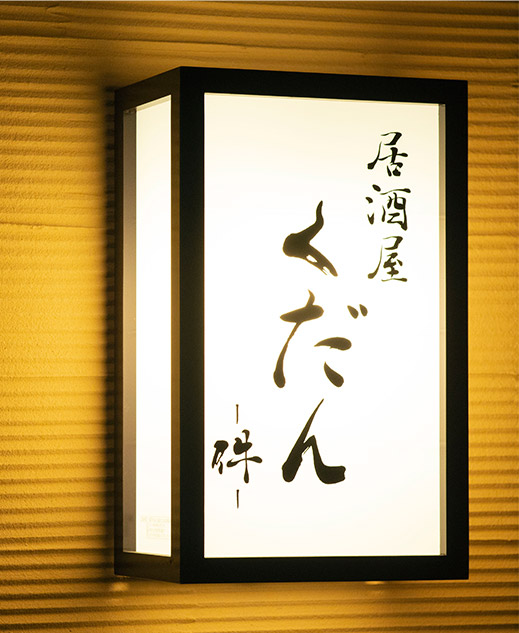 居酒屋
くだん
-件-